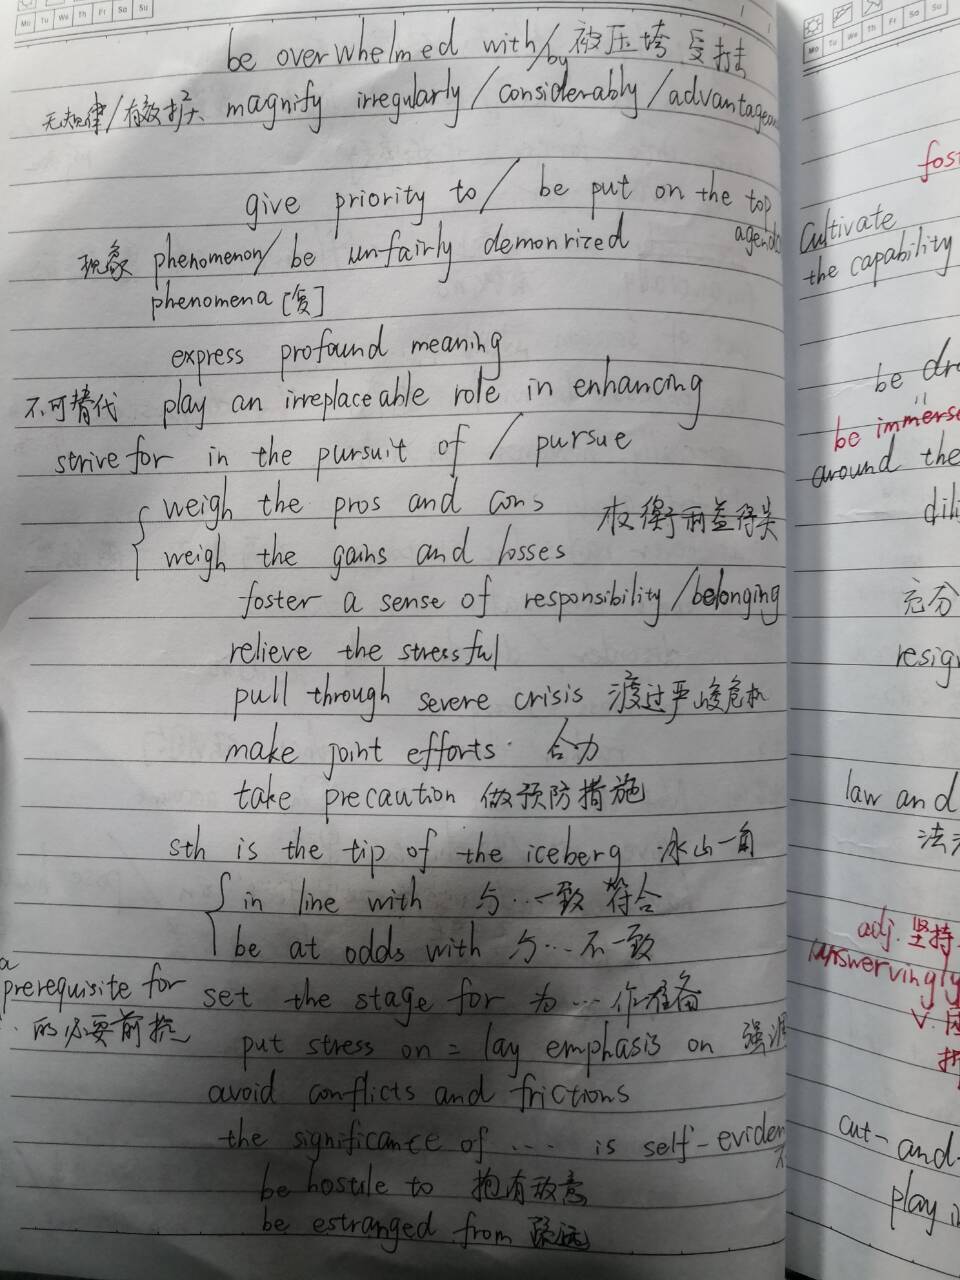 Mo Tu We Th Fr Sa Su
be overwhelmed with/by 被压垮 受打击
无规律/有效扩大 magnify irregularly/considerably/advantageou
give priority to/ be put on the top agenda
现象 phenomenon/ be unfairly demonrized
phenomena [复]
express profound meaning
不可替代 play an irreplaceable role in enhancing
strive for in the pursuit of / pursue
weigh the pros and cons 权衡利益得失
weigh the gains and losses
foster a sense of responsibility/belonging
relieve the stressful
pull through severe crisis 渡过严峻危机
make joint efforts 合力
take precaution 做预防措施
sth is the tip of the iceberg 冰山一角
in line with 与…一致 符合
be at odds with 与…不一致
a prerequisite for
的必要前提
set the stage for 为…作准备
put stress on = lay emphasis on 强调
avoid conflicts and frictions
the significance of …… is self-eviden
be hostile to 抱有敌意
be estranged from 疏远
Mo Tu We Th Fr Sa Su
fos
Cultivate
the capability
be dr
be immerse
around the
dili
充分
resig
law and
法
adj. 坚持
unswervingly
v.
cut-and-
play i